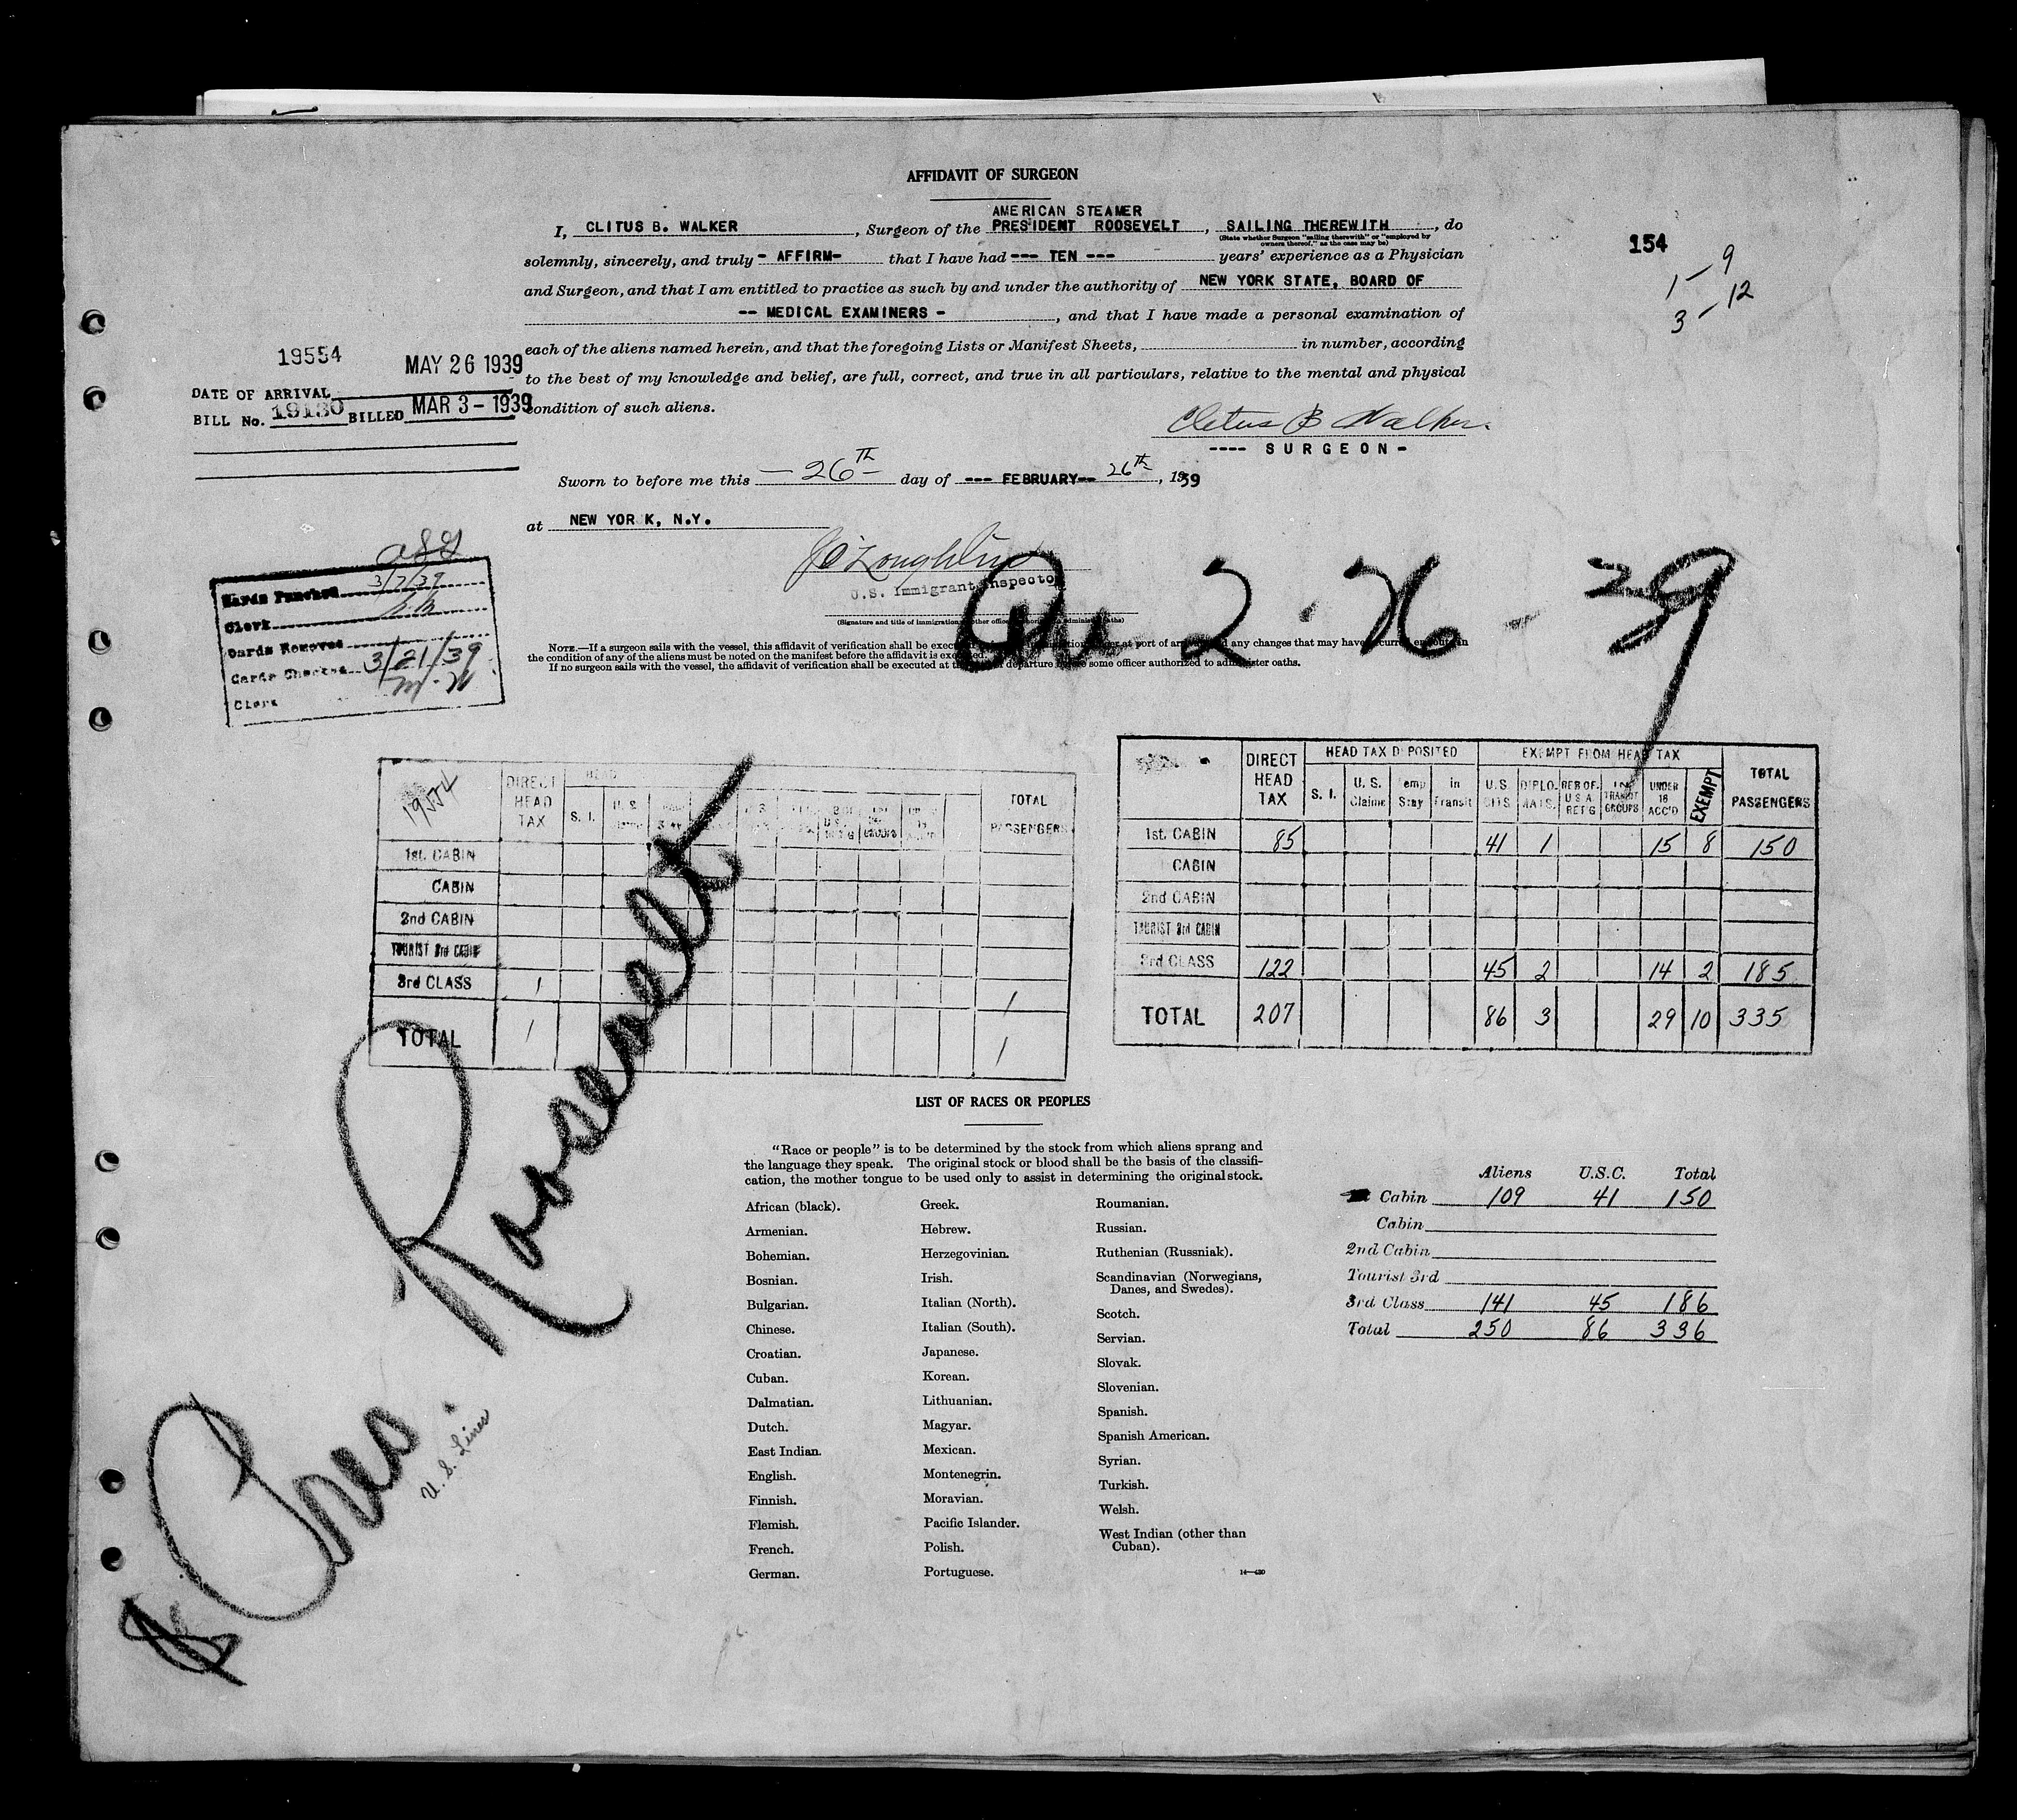 AFFIDAVIT OF SURGEON
AMERICAN STEAMER
I, CLITUS B. WALKER, Surgeon of the PRESIDENT ROOSEVELT, SAILING THEREWITH, do
(State whether Surgeon "sailing therewith" or "employed by
owners thereof," as the case may be)
154
solemnly, sincerely, and truly - AFFIRM- that I have had --- TEN --- years' experience as a Physician
1 - 9
and Surgeon, and that I am entitled to practice as such by and under the authority of NEW YORK STATE, BOARD OF
3 - 12
-- MEDICAL EXAMINERS -, and that I have made a personal examination of
each of the aliens named herein, and that the foregoing Lists or Manifest Sheets, in number, according
to the best of my knowledge and belief, are full, correct, and true in all particulars, relative to the mental and physical
condition of such aliens.
19554 MAY 26 1939
DATE OF ARRIVAL
BILL No. 19130 BILLED MAR 3 - 1939
Cletus B Walker.
---- SURGEON -
Sworn to before me this - 26th - day of --- FEBRUARY-- 26th, 1939
at NEW YORK, N.Y.
J O'Loughlin
U.S. Immigrant Inspector
2 26 - 39
Cards Punched 3/7/39
Clerk
Cards Removed
Cards Checked 3/21/39
Clerk
NOTE.—If a surgeon sails with the vessel, this affidavit of verification shall be executed at port of any changes that may have
the condition of any of the aliens must be noted on the manifest before the affidavit is executed.
If no surgeon sails with the vessel, the affidavit of verification shall be executed at departure some officer authorized to administer oaths.
19554 DIRECT HEAD TAX HEAD S. I. U. S. TOTAL PASSENGERS
1st. CABIN
CABIN
2nd CABIN
TOURIST 3rd CABIN
3rd CLASS 1 1
TOTAL 1 1
DIRECT HEAD TAX HEAD TAX DEPOSITED EXEMPT FROM HEAD TAX TOTAL PASSENGERS
S. I. U. S. Claims Temp Stay in Transit U.S. CITS DIPLO. MATS. RES OF. U S A RET'G IN TRANSIT GROUPS UNDER 16 ACC'D EXEMPT
1st. CABIN 85 41 1 15 8 150
CABIN
2nd CABIN
TOURIST 3rd CABIN
3rd CLASS 122 45 2 14 2 185
TOTAL 207 86 3 29 10 335
Pres Roosevelt
U. S. Lines
LIST OF RACES OR PEOPLES
"Race or people" is to be determined by the stock from which aliens sprang and
the language they speak. The original stock or blood shall be the basis of the classifi-
cation, the mother tongue to be used only to assist in determining the original stock.
African (black).
Armenian.
Bohemian.
Bosnian.
Bulgarian.
Chinese.
Croatian.
Cuban.
Dalmatian.
Dutch.
East Indian.
English.
Finnish.
Flemish.
French.
German.
Greek.
Hebrew.
Herzegovinian.
Irish.
Italian (North).
Italian (South).
Japanese.
Korean.
Lithuanian.
Magyar.
Mexican.
Montenegrin.
Moravian.
Pacific Islander.
Polish.
Portuguese.
Roumanian.
Russian.
Ruthenian (Russniak).
Scandinavian (Norwegians,
Danes, and Swedes).
Scotch.
Servian.
Slovak.
Slovenian.
Spanish.
Spanish American.
Syrian.
Turkish.
Welsh.
West Indian (other than
Cuban).
Aliens U.S.C. Total
Cabin 109 41 150
Cabin
2nd Cabin
Tourist 3rd
3rd Class 141 45 186
Total 250 86 336